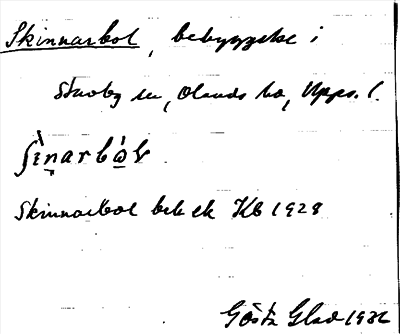 Skinnarbol, bebyggelse i
Stavby sn, Olands hd, Upps. l.
ʃìnarbó̀l
Skinnarbol bebck Kb 1928
Gösta Glad 1932